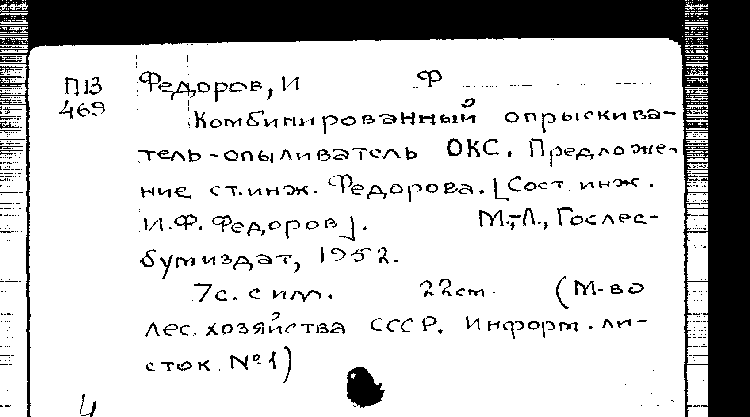 П13 Федоров, И Ф
469 Комбинированный опрыскива-
тель-опыливатель ОКС. Предложе-
ние ст.инж. Федорова. [Сост. инж.
И.Ф. Федоров]. М.-Л., Гослес-
бумиздат, 1952.
7с. с илл. 22см. (М-во
лес. хозяйства СССР. Информ. ли-
сток. №1)
4